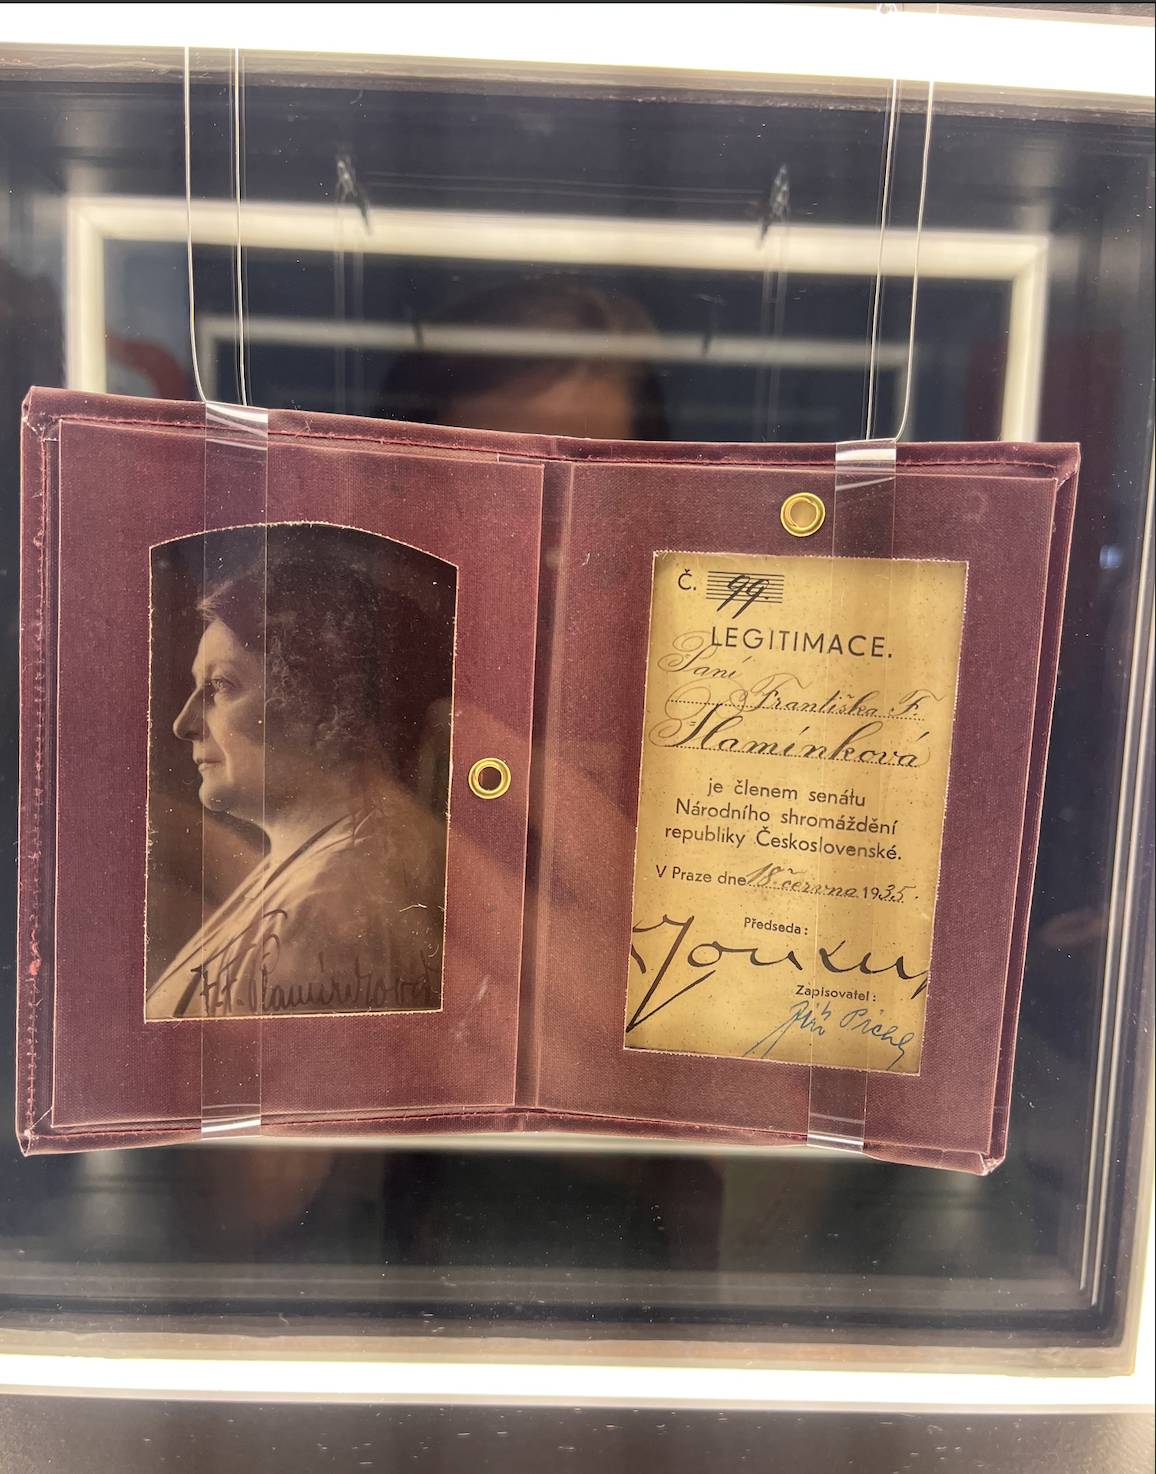 F. F. Plamínková
Č. 99.
LEGITIMACE.
Paní
Františka F.
Plamínková
je členem senátu
Národního shromáždění
republiky Československé.
V Praze dne 18. června 1935.
Předseda:
Zapisovatel:
Jiří Pichl